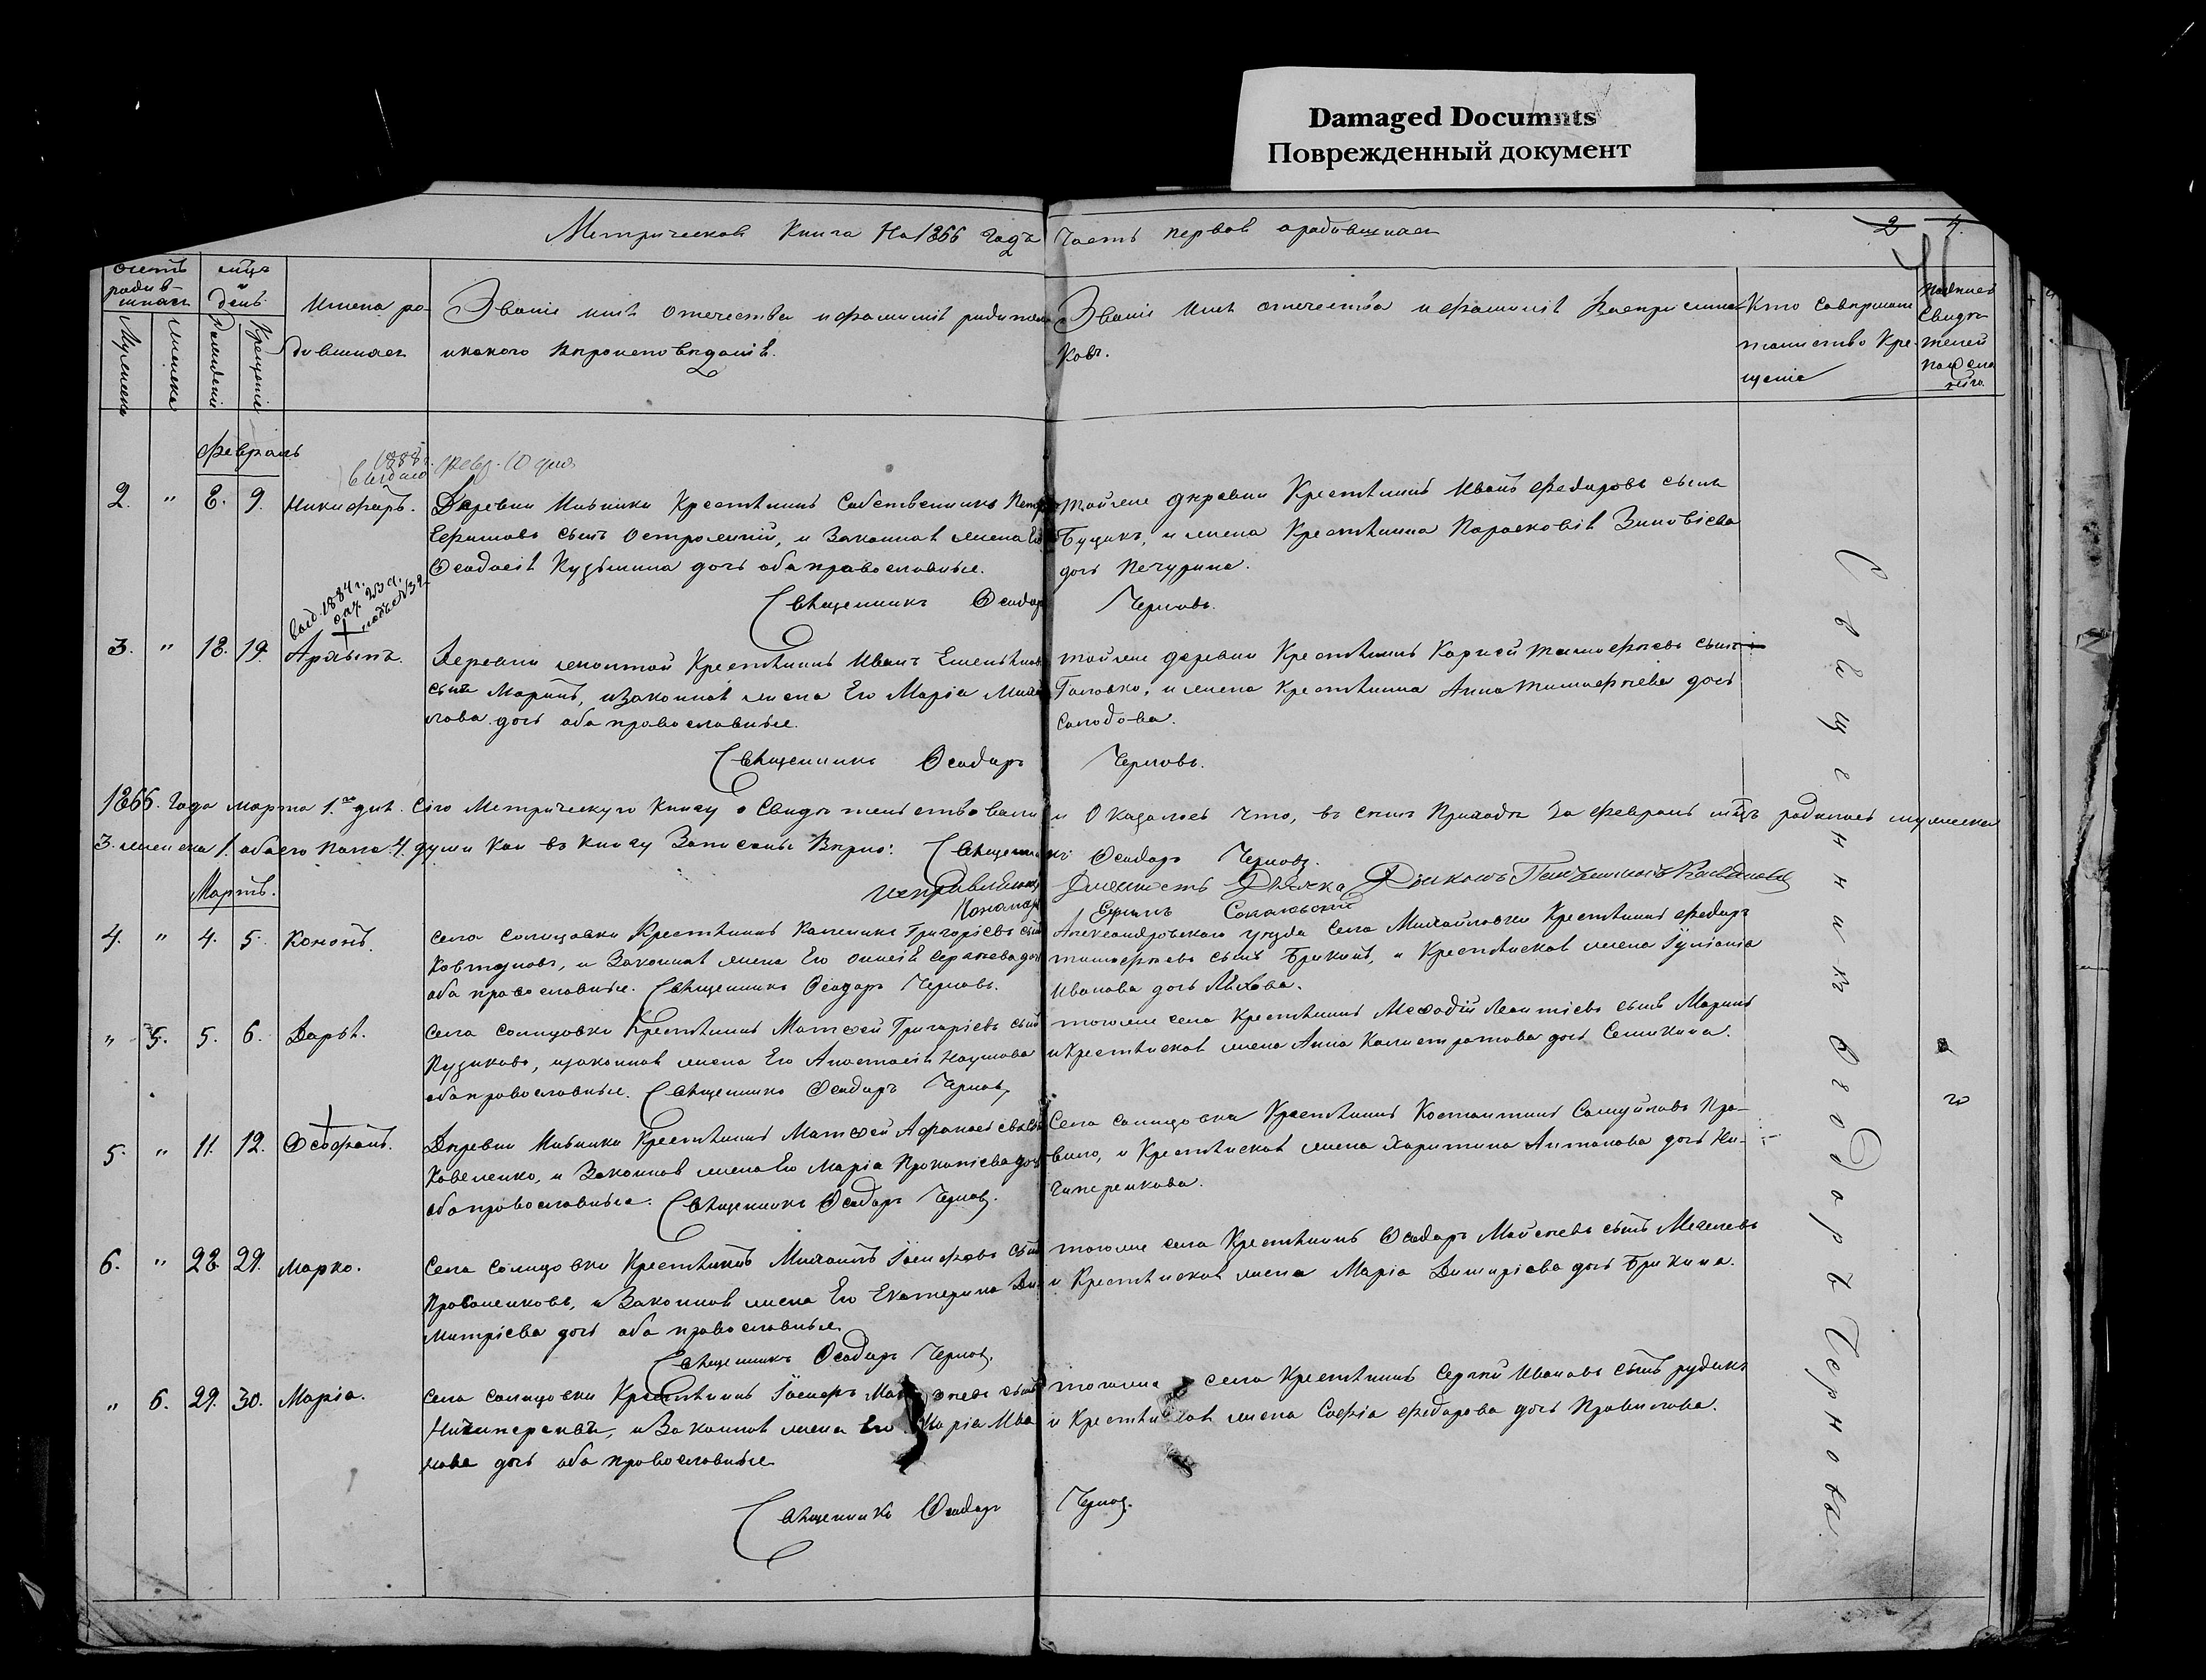 Damaged Documnts
Поврежденный документ
Метрическая Книга На 1866 Годъ Часть первая ародившихся
2 4.
Счетъ родив-шихся
мца и день
Мужеска
Женска
Рожденія
Крещенія
Имена ро-
дившихся
Званіе имя отечество и фамилія родителей
икакого вѣроисповѣданія.
Званіе имя отечество и фамилія Воспріемни-
ковъ.
Кто Совершалъ
таинство Кре-
щенія
Свидѣ-
телей
Февраль
1888 г. февр. 10 дня
выдано
2. " 8. 9. Никифоръ. Деревни Мивники Крестьянинъ Собственникъ Петръ
Ефимовъ сынъ Остролуцкій, и Законная жена Его
Ѳеодосія Кузьмина дочь оба православные.
Священникъ Ѳеодоръ Черновъ.
тойже деревни Крестьянинъ Иванъ Федоровъ сынъ
Буцикъ, и жена Крестьянина Парасковія Зиновіева
дочь Печурина.
выд. 1884 г.
3. " 18. 19. Архипъ. Деревни Крестьянинъ Иванъ Емельяновъ
сынъ Маринъ, и Законная жена Его Марія Михай-
лова дочь оба православные.
Священникъ Ѳеодоръ Черновъ.
тойже деревни Крестьянинъ Карней Тимофѣевъ сынъ
Головко, и жена Крестьянина Анна Тимофѣева дочь
Солодова.
1866. Года марта 1.го дня. Сію Метрическую Книгу Свидѣтельствовали и Оказалось что, въ семъ Приходѣ за февраль мцъ родилось мужеска
3. женска 1. обоего пола 4. души Кои въ Книгу Записаны Вѣрно: Священникъ Ѳеодоръ Черновъ.
исправляющій Должность Дьячка Діаконъ
Пономарь Сокальскій
Мартъ.
4. " 4. 5. Кононъ. Села Солнцовки Крестьянинъ Калиникъ Григорьевъ сынъ
Ковтуновъ, и Законная жена Его Онисія Сергѣева дочь
оба православные. Священникъ Ѳеодоръ Черновъ.
Александровскаго уѣзда Села Михайловки Крестьянинъ Федоръ
тимофѣевъ сынъ Брикинъ, и Крестьянская жена Іуліанія
Иванова дочь Ляхова.
" 5. 5. 6. Дарья. Села Солнцовки Крестьянинъ Матѳей Григорьевъ сынъ
Пузиковъ, изаконная жена Его Анастасія Наумова
оба православные. Священникъ Ѳеодоръ Черновъ.
тогоже села Крестьянинъ Меѳодій Леонтіевъ сынъ Маринъ
и Крестьянская жена Анна Калистратова дочь Семикина.
5. " 11. 12. Ѳеофанъ. Деревни Мивники Крестьянинъ Матѳей Афанасіевъ сынъ
Коваленко, и Законная жена Его Марія Прокопіева дочь
оба православные. Священникъ Ѳеодоръ Черновъ.
Села Солнцовки Крестьянинъ Костантинъ Самуиловъ Про-
вило, и Крестьянская жена Харитина Антонова дочь Ни-
чиперенкова.
6. " 28. 29. Марко. Села Солнцовки Крестьянинъ Михаилъ Іосифовъ сынъ
Проваленковъ, и Законная жена Его Екатерина Ди-
митріева дочь оба православные.
Священникъ Ѳеодоръ Черновъ.
тогоже села Крестьянинъ Ѳеодоръ Мойсеевъ сынъ
и Крестьянская жена Марія Димитріева дочь Брикина.
" 6. 29. 30. Марія. Села Солнцовки Крестьянинъ Іосифъ сынъ
Ничиперенко, и Законная жена Его Марія Ива-
нова дочь оба православные
Священникъ Ѳеодоръ Черновъ.
тогоже села Крестьянинъ Сергѣй Ивановъ сынъ рудикъ
и Крестьянская жена Софія Федорова дочь Провилова.
Священникъ Ѳеодоръ Черновъ.